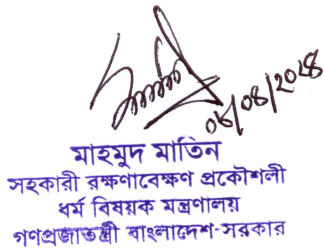 ০৮/০৪/২০২৪
মাহমুদ মাতিন
সহকারী রক্ষণাবেক্ষণ প্রকৌশলী
ধর্ম বিষয়ক মন্ত্রণালয়
গণপ্রজাতন্ত্রী বাংলাদেশ-সরকার